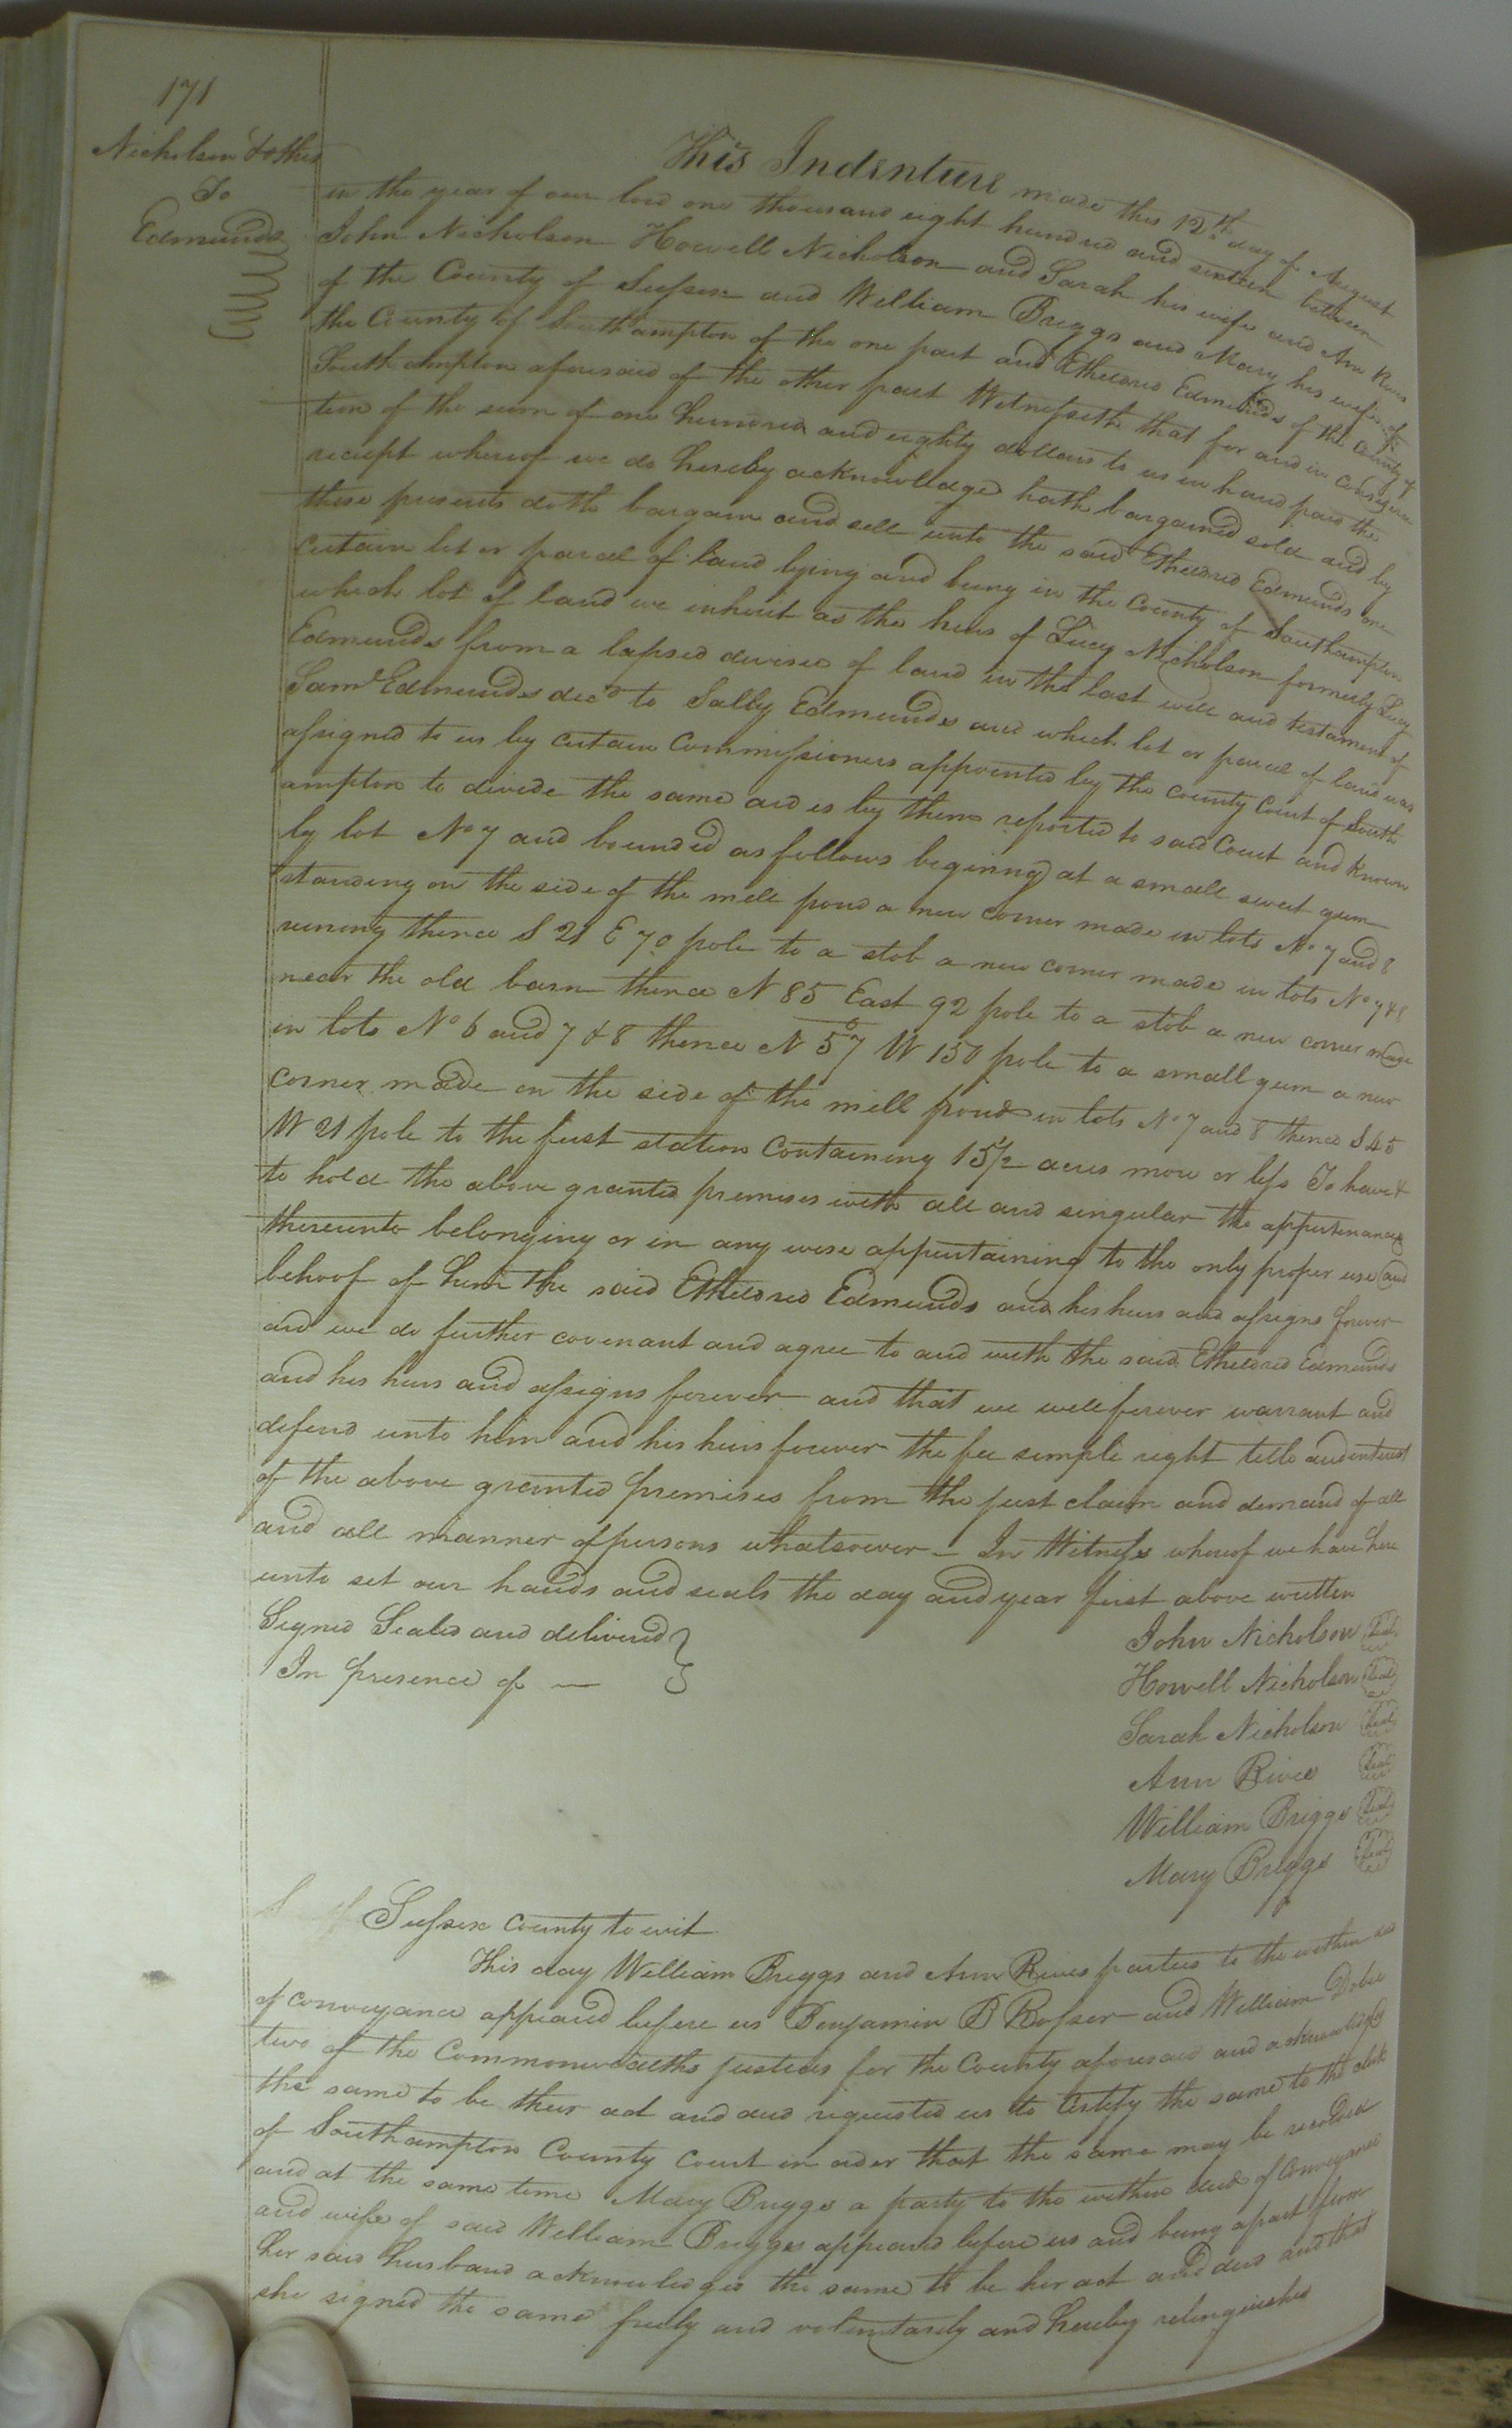 171
Nicholson & others
To
Edmunds
This Indenture made this 12th day of August
in the year of our lord one thousand eight hundred and sixteen between
John Nicholson Howell Nicholson and Sarah his wife and Ann Rives
of the County of Sussex and William Briggs and Mary his wife of
the County of Southampton of the one part and Etheldred Edmunds of the County of
Southampton aforesaid of the other part Witnesseth that for and in considera
tion of the sum of one hundred and eighty dollars to us in hand paid the
receipt whereof we do hereby acknowledge hath bargained sold and by
these presents doth bargain and sell unto the said Etheldred Edmunds one
certain lot or parcel of land lying and being in the County of Southampton
which lot of land we inherit as the heirs of Lucy Nicholson formerly Lucy
Edmunds from a lapsed devise of land in the last will and testament of
Saml Edmunds decd to Sally Edmunds and which lot or parcel of land was
assigned to us by certain Commissioners appointed by the County Court of South
ampton to divide the same and is by them reported to said Court and known
by lot No 7 and bounded as follows beginng at a small sweet gum
standing on the side of the mill pond a new corner made in lots No 7 and 8
runing thence S 21 E 70 pole to a stob a new corner made in lots No 7 & 8
near the old barn thence N 85 East 92 pole to a stob a new corner made
in lots No 6 and 7 & 8 thence N 57 W 150 pole to a small gum a new
corner made on the side of the mill pond in lots No 7 and 8 thence S 45
W 21 pole to the first station Containing 15 1/2 acres more or less To have &
to hold the above granted premises with all and singular the appurtenances
thereunto belonging or in any wise appertaining to the only proper use and
behoof of him the said Etheldred Edmunds and his heirs and assigns forever
and we do further covenant and agree to and with the said Etheldred Edmunds
and his heirs and assigns forever and that we will forever warrant and
defend unto him and his heirs forever the fee simple right title and interest
of the above granted premises from the just claim and demand of all
and all manner of persons whatsoever – In Witness whereof we have here
unto set our hands and seals the day and year first above written
Signed Sealed and deliverd
In presence of —
John Nicholson Seal
Howell Nicholson Seal
Sarah Nicholson Seal
Ann Rives Seal
William Briggs Seal
Mary Briggs Seal
Sussex County to wit
This day William Briggs and Ann Rives parties to the within
of conveyance appeard before us Benjamin B Rosser and William Dobie
two of the Commonwealths justices for the County aforesaid and acknowledged
the same to be their act and deed requested us to Certify the same to the clerk
of Southampton County Court in oder that the same may be recorded
and at the same time Mary Briggs a party to the within deed of Conveyance
and wife of said William Briggs appeared before us and being apart from
her said husband acknowledges the same to be her act and deed and that
she signed the same freely and voluntarily and hereby relinquished